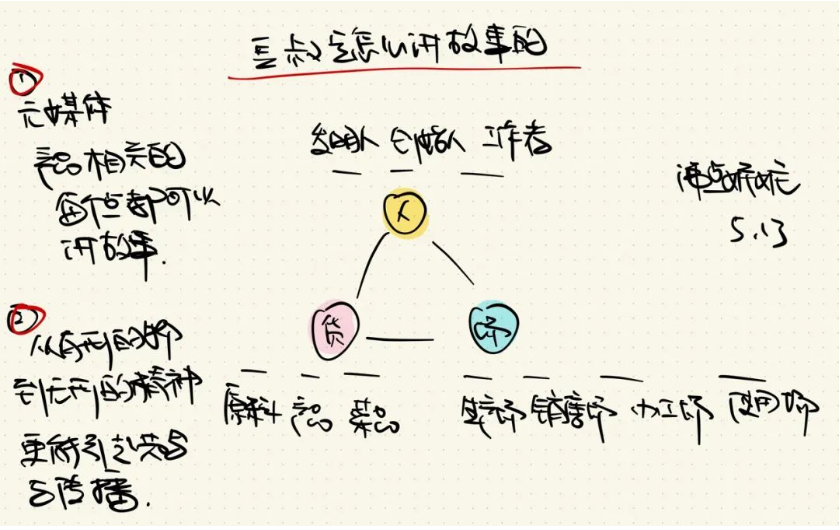 叔是怎么讲故事的
①
元媒体
产品相关的
每个点都可以
讲故事.
发明人 创始人 工作者
人
5.13
货
场
②
从有形的物
到无形的精神
更能引起共鸣
与传播.
原料 产品 菜品
生产场 销售场 加工场 使用场